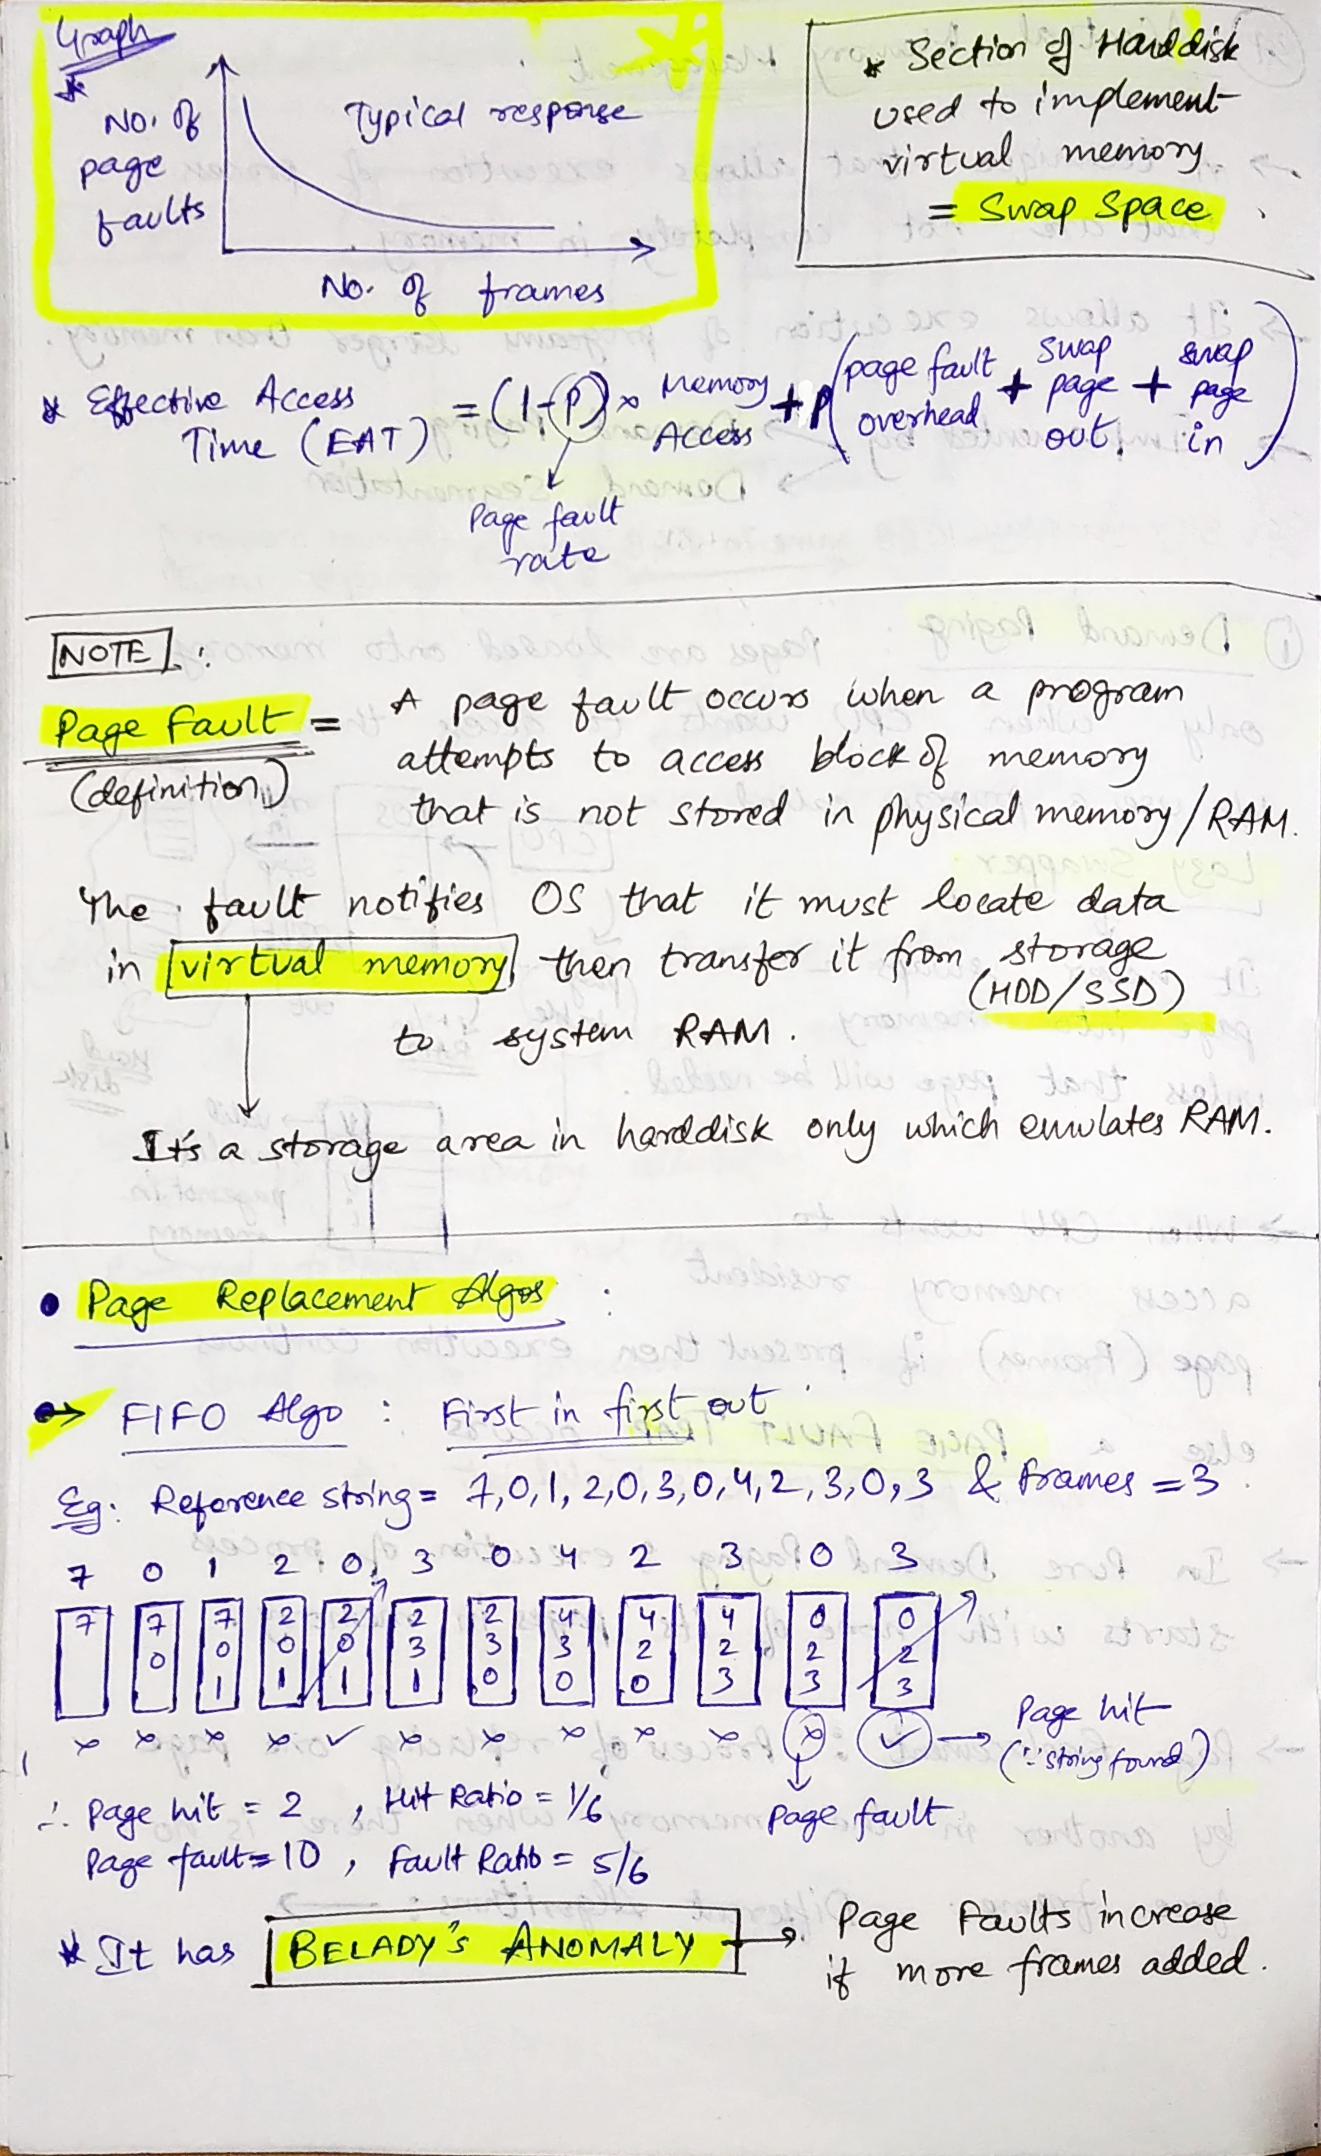 Graph
* No. of page faults
Typical response
No. of frames
* Section of Harddisk
used to implement
virtual memory
= Swap Space.
* Effective Access Time (EAT) = (1-P) x Memory Access + P (page fault overhead + swap page out + swap page in)
Page fault
rate
NOTE :
Page Fault = A page fault occurs when a program
(definition) attempts to access block of memory
that is not stored in physical memory/RAM.
The fault notifies OS that it must locate data
in virtual memory, then transfer it from storage
(HDD/SSD)
to system RAM.
It's a storage area in harddisk only which emulates RAM.
• Page Replacement Algos :
→ FIFO Algo : First in first out
Eg: Reference string = 7,0,1,2,0,3,0,4,2,3,0,3 & frames = 3
7 0 1 2 0 3 0 4 2 3 0 3
7 7 7 2 2 2 2 4 4 4 0 0
0 0 0 0 3 3 3 2 2 2 2
1 1 1 1 0 0 0 3 3 3
x x x x ✓ x x x x x x ✓ → Page hit
(∵ string found)
∴ Page hit = 2 , Hit Ratio = 1/6
Page fault
Page fault = 10 , Fault Ratio = 5/6
* It has BELADY'S ANOMALY → Page Faults increase
if more frames added.